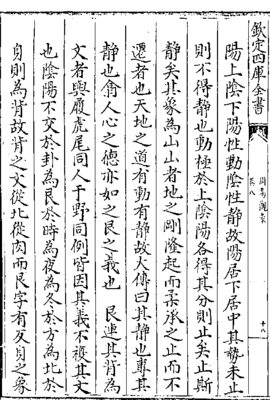 欽定四庫全書
陽上陰下陽性動陰性靜故陽居下居中其勢未止
則不得靜也動極於上陰陽各得其分則止矣止斯
靜矣其象為山山者地之剛隆起而柔承之止而不
遷者也天地之道有動有靜故大傳曰其靜也專其
靜也翕人心之德亦如之艮之義也 艮連其背為
文者與履虎尾同人于野同例皆因其義不複其文
也陰陽不交於卦為艮於時為夜為冬於方為北於
身則為背故背之文從北從肉而艮字有反見之象